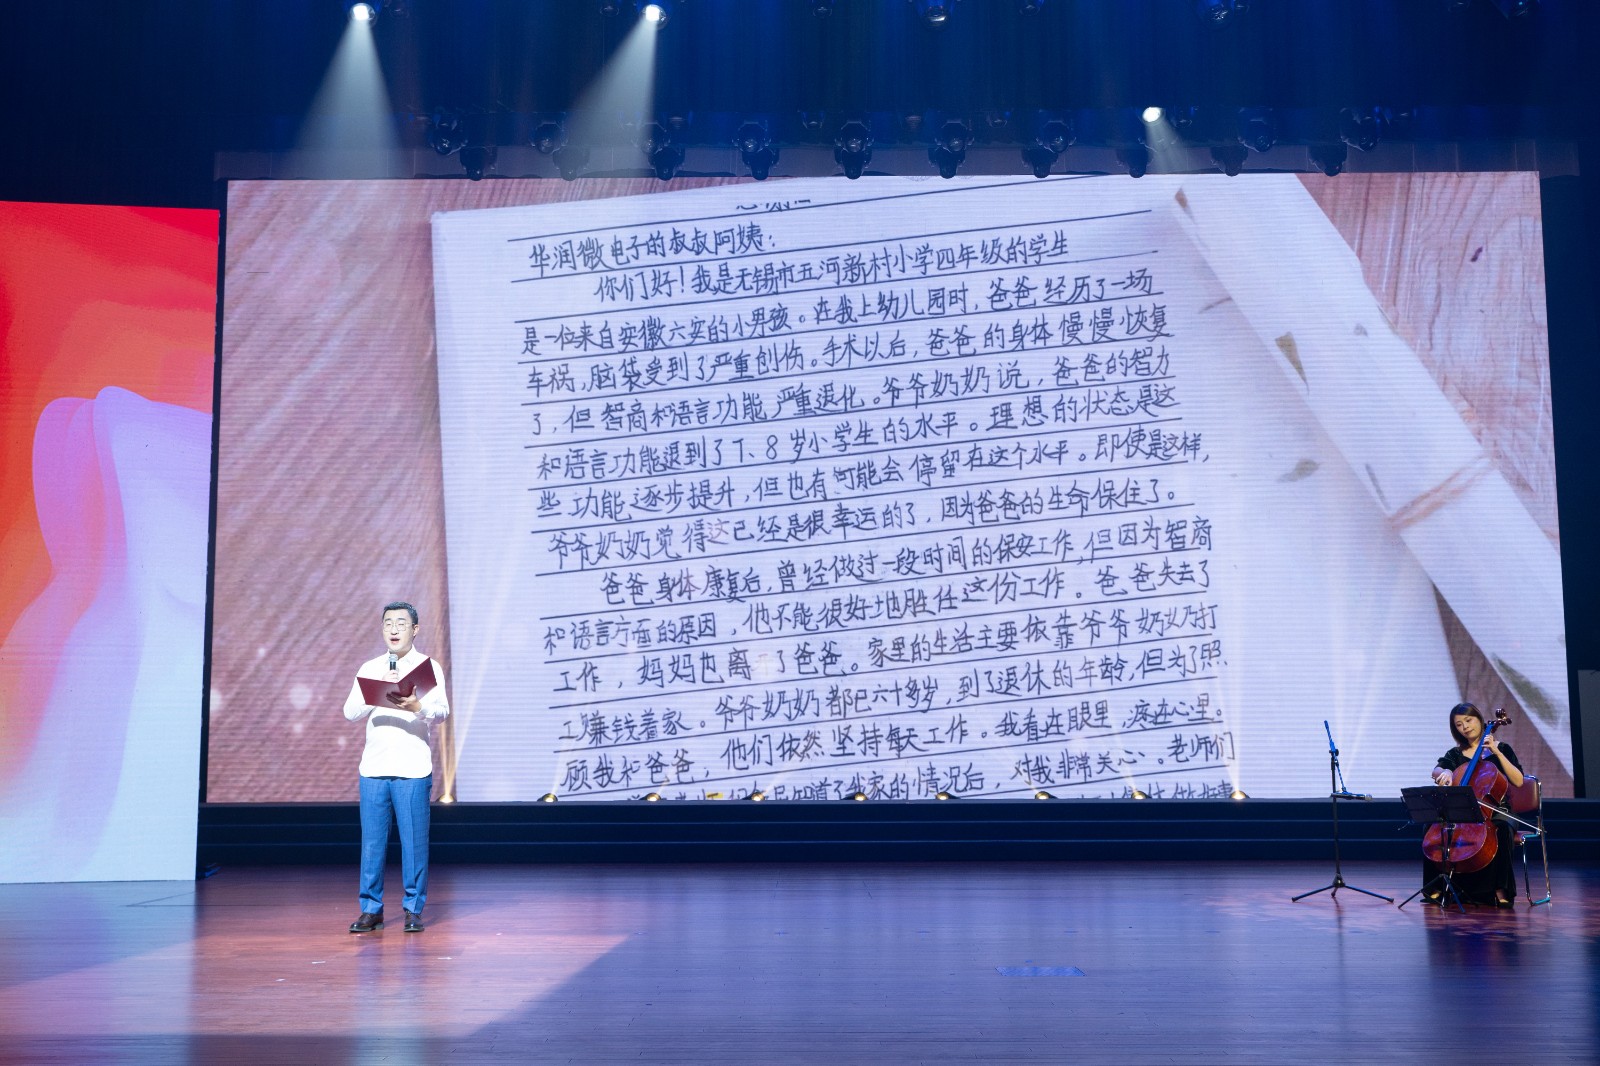 华润微电子的叔叔阿姨:
你们好!我是无锡市五河新村小学四年级的学生
是一位来自安徽六安的小男孩。在我上幼儿园时,爸爸经历了一场
车祸,脑袋受到了严重创伤。手术以后,爸爸的身体慢慢恢复
了,但智商和语言功能严重退化。爷爷奶奶说,爸爸的智力
和语言功能退到了7、8岁小学生的水平。理想的状态是这
些功能逐步提升,但也有可能会停留在这个水平。即使是这样,
爷爷奶奶觉得这已经是很幸运的了,因为爸爸的生命保住了。
爸爸身体康复后,曾经做过一段时间的保安工作,但因为智商
和语言方面的原因,他不能很好地胜任这份工作。爸爸失去了
工作,妈妈也离开了爸爸。家里的生活主要依靠爷爷奶奶打
工赚钱养家。爷爷奶奶都已六十多岁,到了退休的年龄,但为了照
顾我和爸爸,他们依然坚持每天工作。我看在眼里,疼在心里。
知道了我家的情况后,对我非常关心。老师们